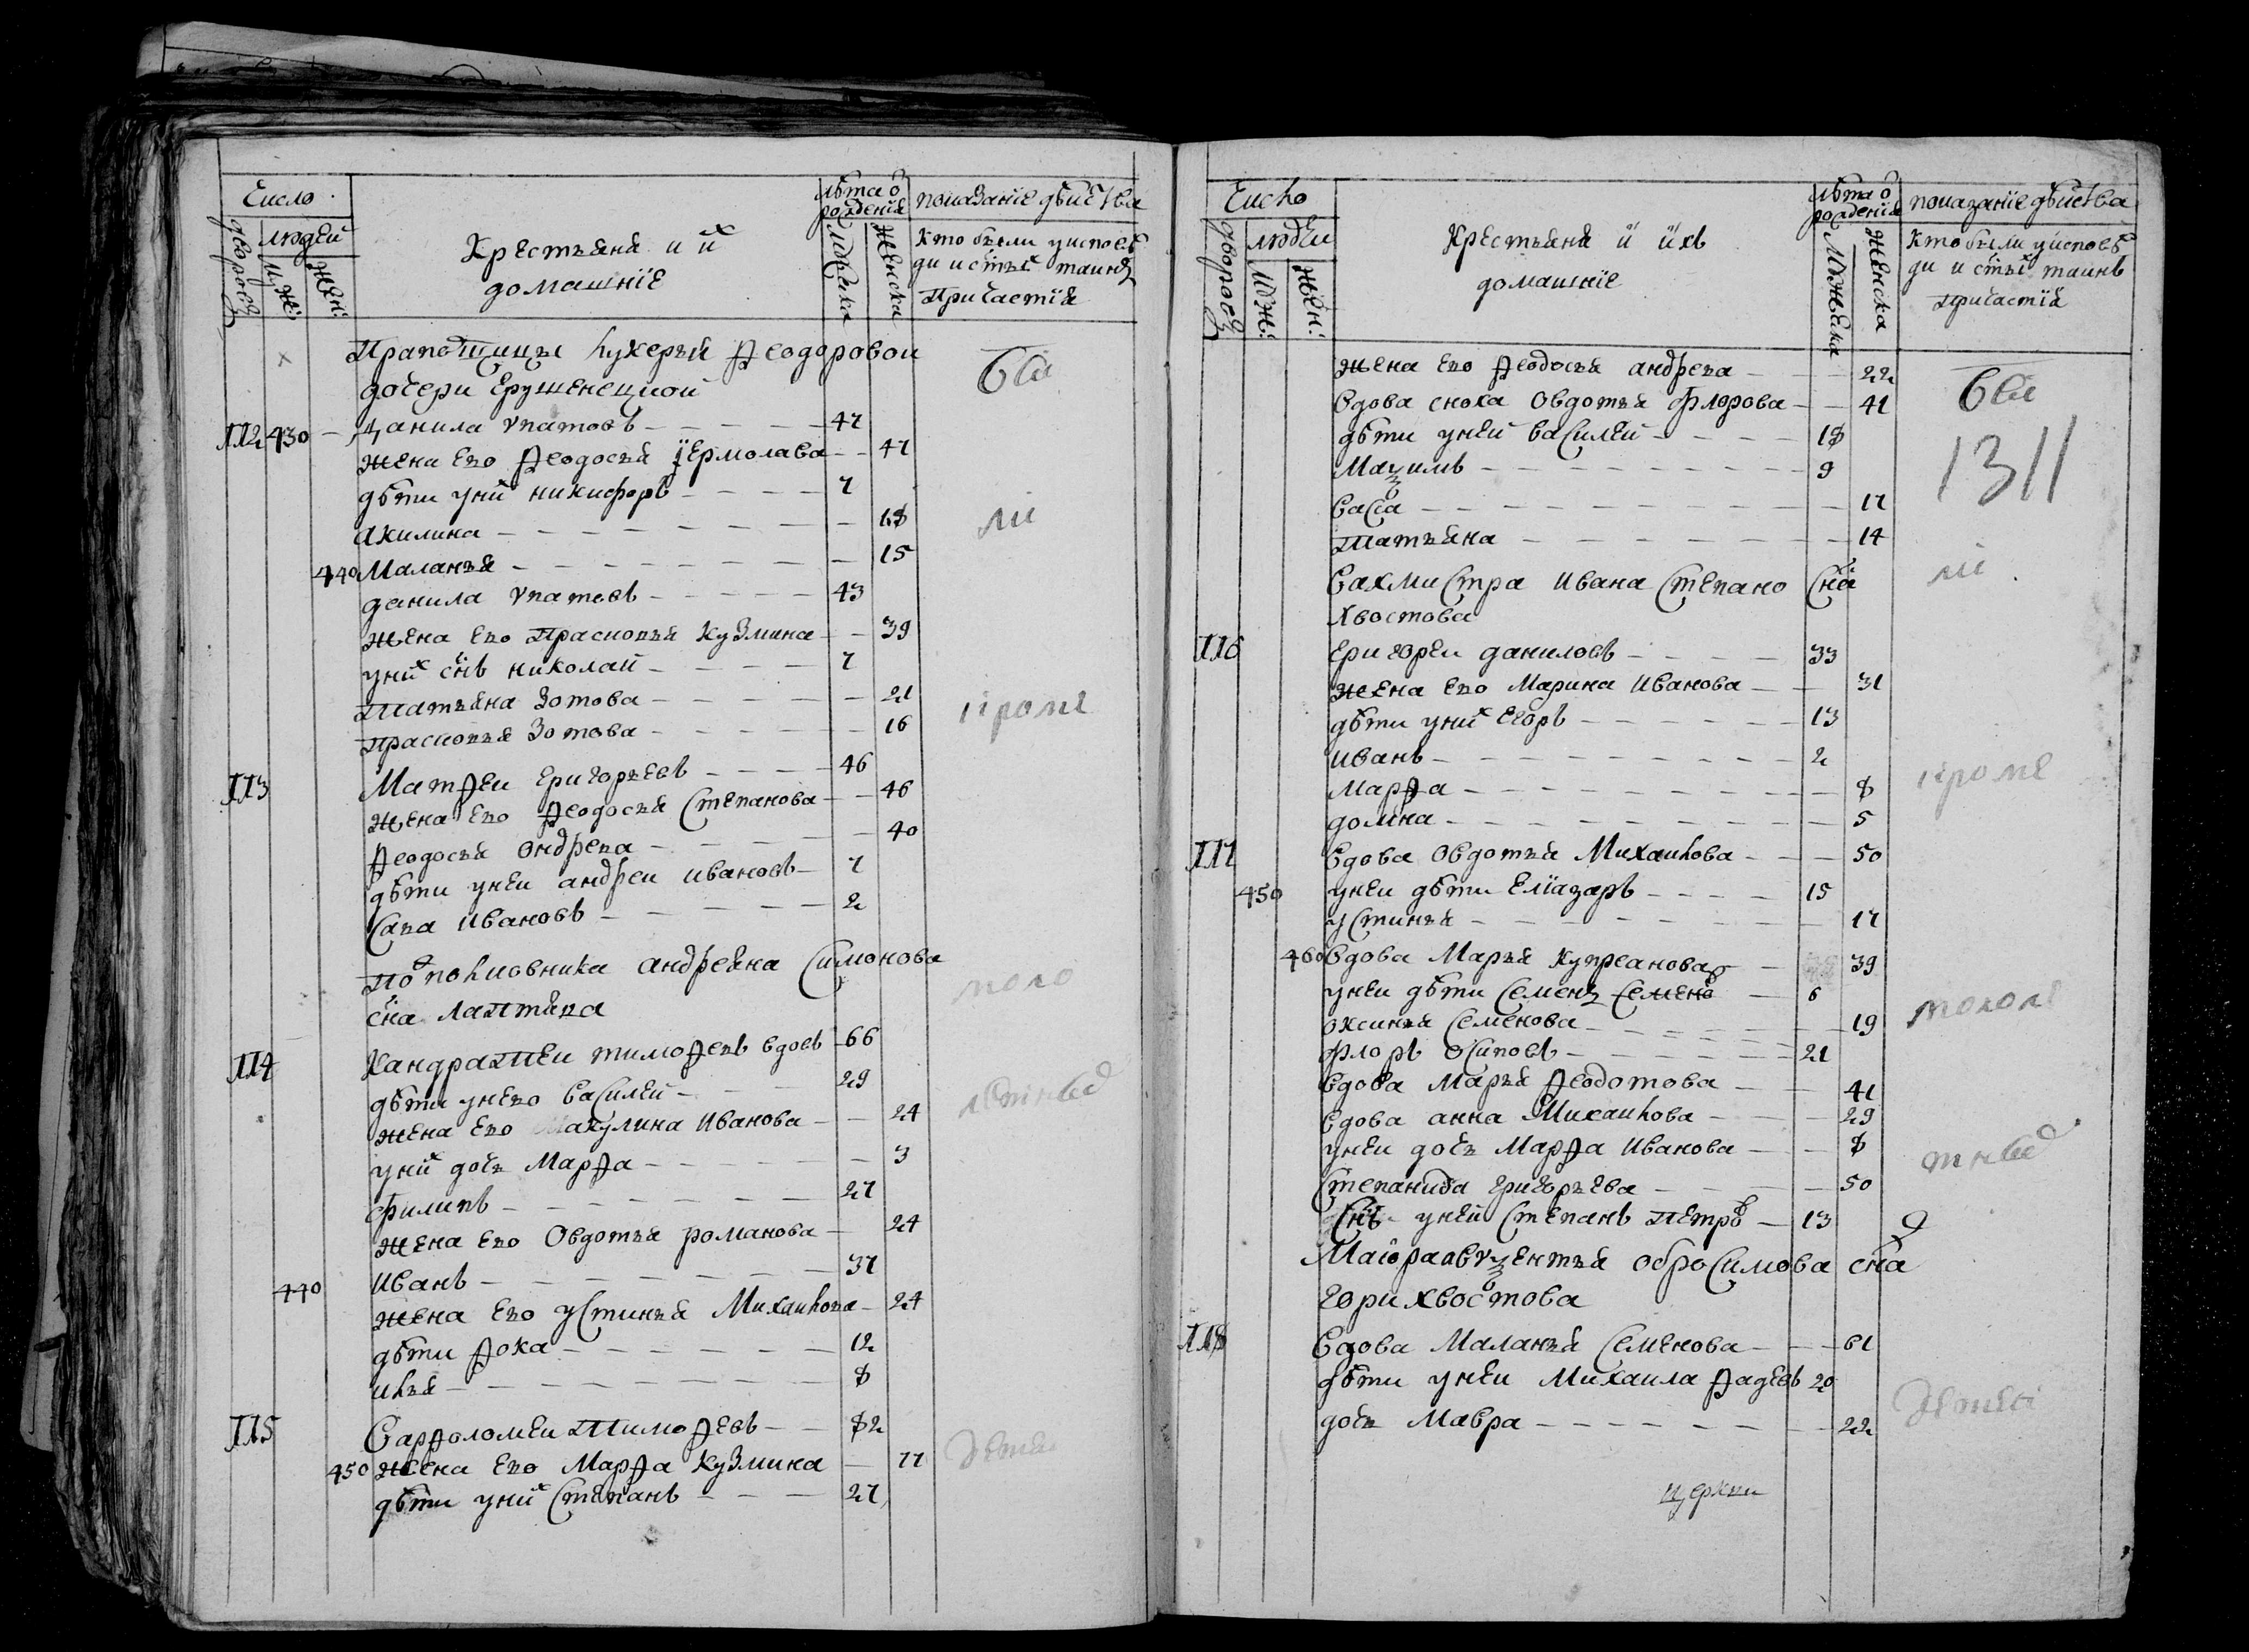 Число
дворовъ
людей
муже
жен:
Крестьяня и их
домашние
лѣта о
рождения
мужска
женска
показание дѣйства
кто были у исповѣ
ди и стых таинъ
Причастия
Прапотщицы Лукерьи Ѳеодоровои
дочери Грушенецкой
бы
112 430 Данила Упатовъ 47
жена его Ѳеодосья Ермолаева 47
дѣти у них никифоръ 7
Акилина 18
ли
440 Маланья 15
данила Упатовъ 43
жена его Прасковья Кузмина 39
у них снъ николаи 7
Татьяна Зотова 21
кроме
прасковья Зотова 16
113 Матѳеи Григорьевъ 46
жена его Ѳеодосья Степанова 46
Ѳеодосья Ондрева 40
дѣти у неи андреи ивановъ 7
Сава ивановъ 2
Потполковника андреяна Симонова
сна Лаптява
114 Кандратеи тимоѳевъ вдовъ 66
дѣти у него Василеи 29
жена его акулина Иванова 24
у них дочь Марѳа 3
филипъ 27
жена его Овдотья романова 24
440 иванъ 37
жена его устинья Михаилова 24
дѣти Ѳока 12
илья 8
115 Варѳоломеи Тимоѳевъ 82
450 жена его Марѳа Кузмина 77
дѣти у них Степанъ 27
Число
дворовъ
людеи
муж:
жен:
Крестьяня и ихъ
домашние
лѣта о
рождения
мужеска
женска
показание дѣйства
кто были у исповѣ
ди и стых таинъ
причастия
жена его Ѳеодосья андрева 22
Вдова сноха Овдотья флорова 41
бы
дѣти у неи василеи 18
Мазимъ 9
1311
Васса 17
Татьяна 14
Вахмистра Ивана Степано сна
Хвостова
ли
116 Григореи даниловъ 33
жена его Марина Иванова 31
дѣти у них Егоръ 13
иванъ 2
кроме
Марѳа 8
домна 5
117 Вдова Овдотья Михаилова 50
450 у неи дѣти Елиазаръ 15
устинья 17
460 Вдова Марья Купреанова 39
у неи дѣти Семенъ Семенъ 6
оксинья Семенова 19
флоръ Осиповъ 21
Вдова Марья Ѳеодотова 41
Вдова анна Михаилова 29
у неи дочь Марѳа Иванова 8
Степанида Григорьева 50
Снъ у неи Степанъ Петровъ 13
Маиора авксентья обросимова сна
гори хвостова
118 Вдова Маланья Семенова 61
дѣти у неи Михаила Ѳадевъ 20
дочь Мавра 22
церкви